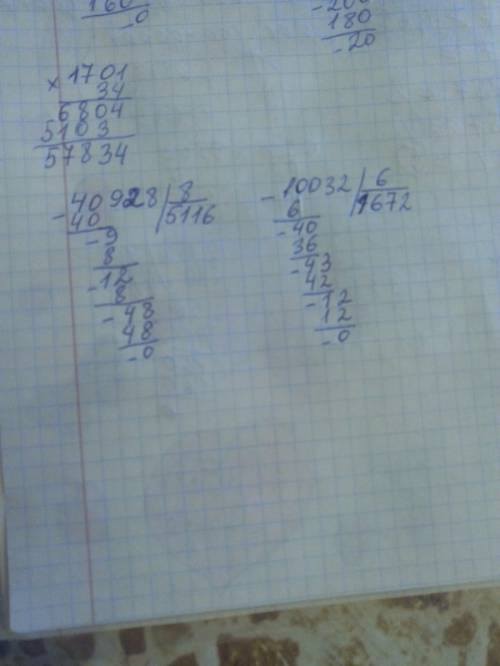 160
-0
-200
180
-20
× 1701
34
6804
5103
57834
- 40928 | 8
40 | 5116
-9
8
-12
8
-48
48
-0
- 10032 | 6
6 | 1672
-40
36
-43
42
-12
12
-0